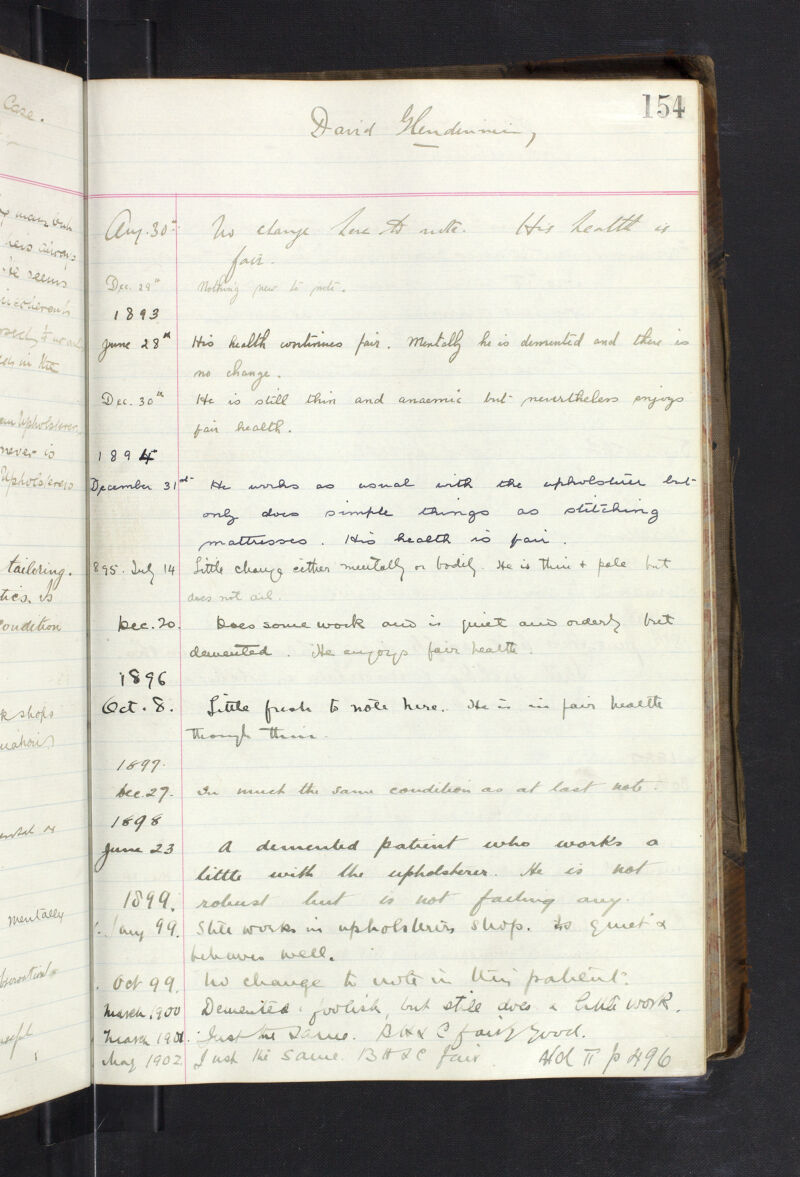 154
David Glendinning
Aug. 30th No change here to note. His health is
fair.
Dec. 29th Nothing new to note.
1893
June 28th His health continues fair. Mentally he is demented and there is
no change.
Dec. 30th He is still thin and anaemic but nevertheless enjoys
fair health.
1894
December 31st He works as usual with the upholsterer but
only does simple things as stitching
mattresses. His health is fair.
895. July 14 Little change either mentally or bodily. He is thin & pale but
does not ail.
Dec. 20. Does some work and is quiet and orderly but
demented. He enjoys fair health.
1896
Oct. 8. Little fresh to note here. He is in fair health
though thin.
1897.
Dec. 27. In much the same condition as at last note.
1898
June 23 A demented patient who works a
little with the upholsterer. He is not
1899. robust but is not failing any.
Jany 99. Still works in upholsterers shop. Is quiet &
behaves well.
Oct 99. No change to note in this patient.
March, 1900 Demented, foolish, but still does a little work.
March 1901. Just the same. B H & C fairly good.
May 1902 Just the same. B H & C fair Hd II p 496
Case.
man but
he is always
He seems
in the
Upholsterer
never is
Upholsterers
tailoring.
is
condition
shops
mentally